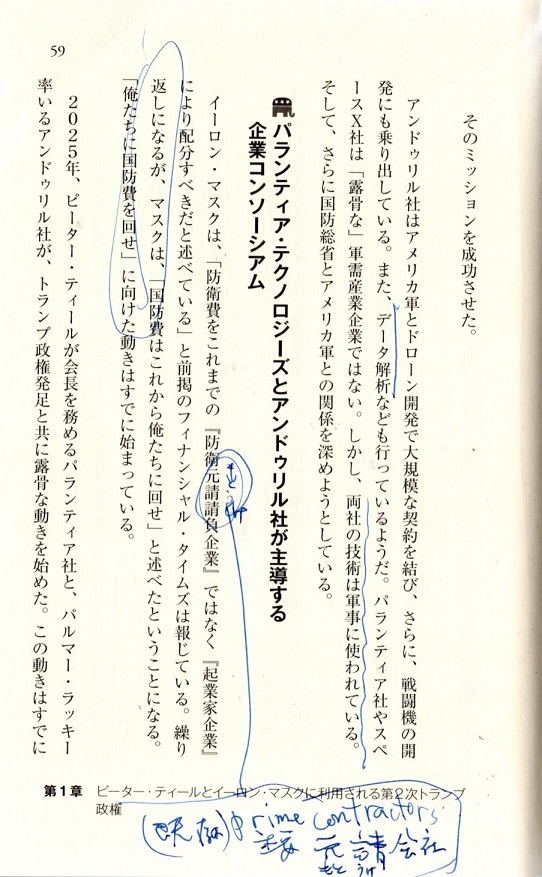 そのミッションを成功させた。
アンドゥリル社はアメリカ軍とドローン開発で大規模な契約を結び、さらに、戦闘機の開
発にも乗り出している。また、データ解析なども行っているようだ。パランティア社やスペ
ースX社は「露骨な」軍需産業企業ではない。しかし、両社の技術は軍事に使われている。
そして、さらに国防総省とアメリカ軍との関係を深めようとしている。
パランティア・テクノロジーズとアンドゥリル社が主導する
企業コンソーシアム
イーロン・マスクは、「防衛費をこれまでの『防衛元請請負企業』ではなく『起業家企業』
により配分すべきだと述べている」と前掲のフィナンシャル・タイムズは報じている。繰り
返しになるが、マスクは、「国防費はこれから俺たちに回せ」と述べたということになる。
「俺たちに国防費を回せ」に向けた動きはすでに始まっている。
2025年、ピーター・ティールが会長を務めるパランティア社と、パルマー・ラッキー
率いるアンドゥリル社が、トランプ政権発足と共に露骨な動きを始めた。この動きはすでに
59
第1章 ピーター・ティールとイーロン・マスクに利用される第2次トランプ
政権
prime contractors
元請会社
もと うけ